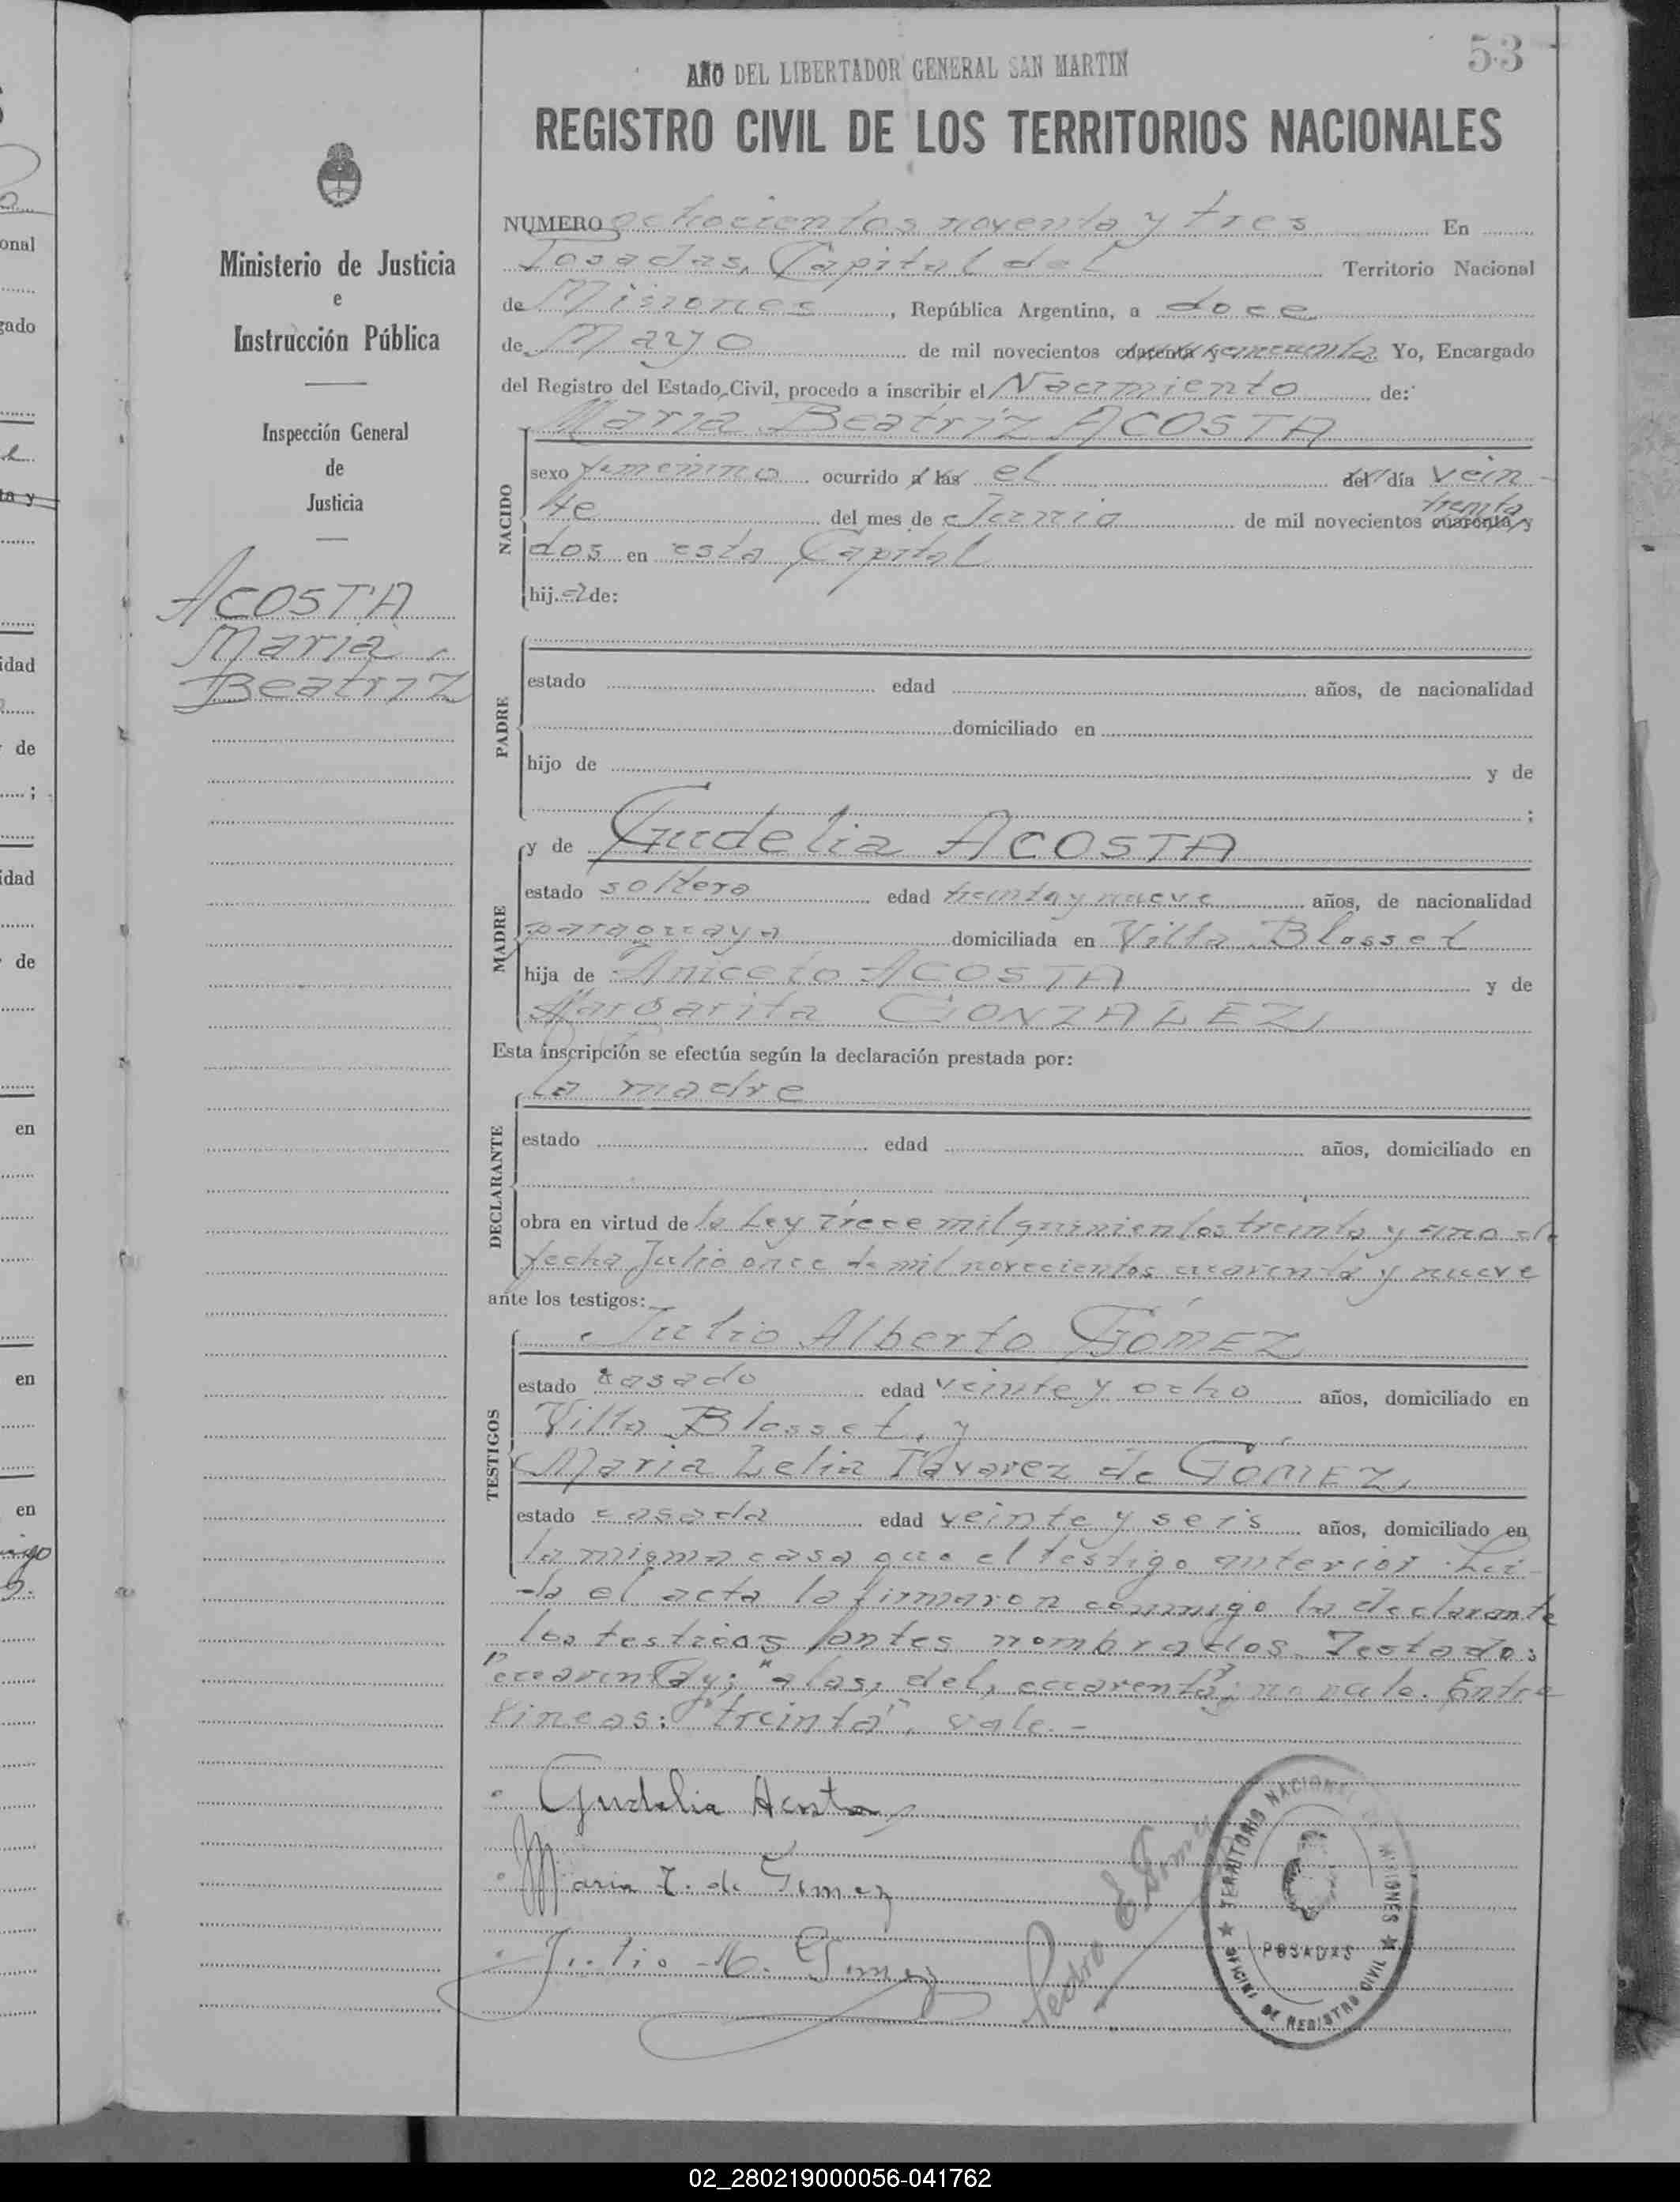 53
AÑO DEL LIBERTADOR GENERAL SAN MARTIN
REGISTRO CIVIL DE LOS TERRITORIOS NACIONALES
Ministerio de Justicia
e
Instrucción Pública
Inspección General
de
Justicia
ACOSTA
Maria
Beatriz
NUMERO ochocientos noventa y tres En
Posadas, Capital del Territorio Nacional
de Misiones, República Argentina, a doce
de Mayo de mil novecientos cuarenta y cincuenta Yo, Encargado
del Registro del Estado Civil, procedo a inscribir el Nacimiento de:
Maria Beatriz ACOSTA
NACIDO
sexo femenino ocurrido a las el del día vein-
treinta
te del mes de Junio de mil novecientos cuarenta y
dos en esta Capital
hija de:
PADRE
estado edad años, de nacionalidad
domiciliado en
hijo de y de
;
MADRE
y de Gudelia ACOSTA
estado soltera edad treinta y nueve años, de nacionalidad
paraguaya domiciliada en Villa Blosset
hija de Aniceto ACOSTA y de
Margarita GONZALEZ,
Esta inscripción se efectúa según la declaración prestada por:
la madre
DECLARANTE
estado edad años, domiciliado en
obra en virtud de la Ley trece mil quinientos treinta y uno de
fecha Julio once de mil novecientos cuarenta y nueve
ante los testigos:
TESTIGOS
Julio Alberto GÓMEZ
estado casado edad veinte y ocho años, domiciliado en
Villa Blosset, y
Maria Lelia Távarez de GÓMEZ,
estado casada edad veinte y seis años, domiciliado en
la misma casa que el testigo anterior. Leí-
da el acta la firmaron conmigo la declarante
los testigos antes nombrados. Testado:
"cuarenta y; "a las, del, cuarenta"; no vale. Entre
líneas: "treinta", vale.-
Gudelia Acosta
Maria T. de Gomez
Julio A. Gomez
Pedro E Gomez
TERRITORIO NACIONAL DE MISIONES
POSADAS
OFICINA DE REGISTRO CIVIL
onal
gado
ta y
idad
de
;
idad
de
en
en
en
02_280219000056-041762